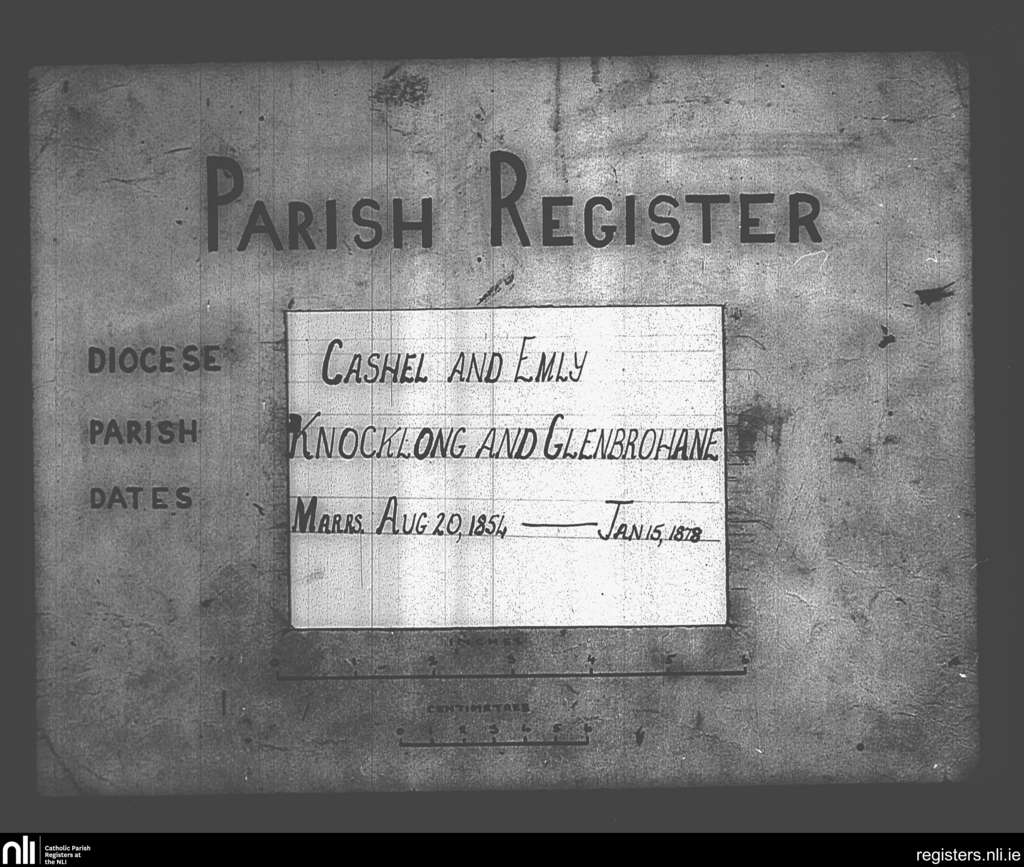 PARISH REGISTER
DIOCESE CASHEL AND EMLY
PARISH KNOCKLONG AND GLENBROHANE
DATES MARRS. AUG 20, 1854 — JAN 15, 1878
INCHES
0 1 2 3 4 5 6
CENTIMETRES
0 1 2 3 4 5 6
nli Catholic Parish
Registers at
the NLI
registers.nli.ie